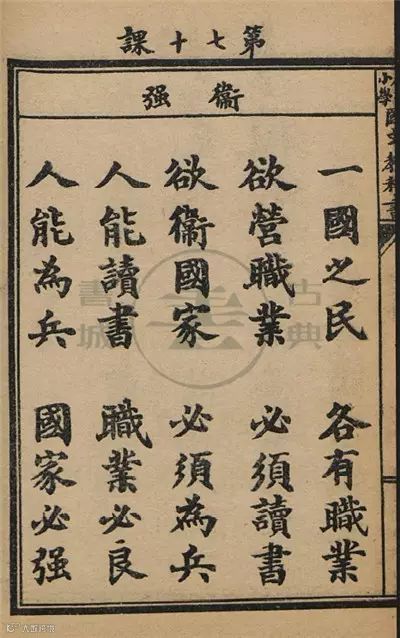 第十七課
衞强
一國之民　各有職業
欲營職業　必須讀書
欲衞國家　必須為兵
人能讀書　職業必良
人能為兵　國家必强
小學國文教科書
古典書城